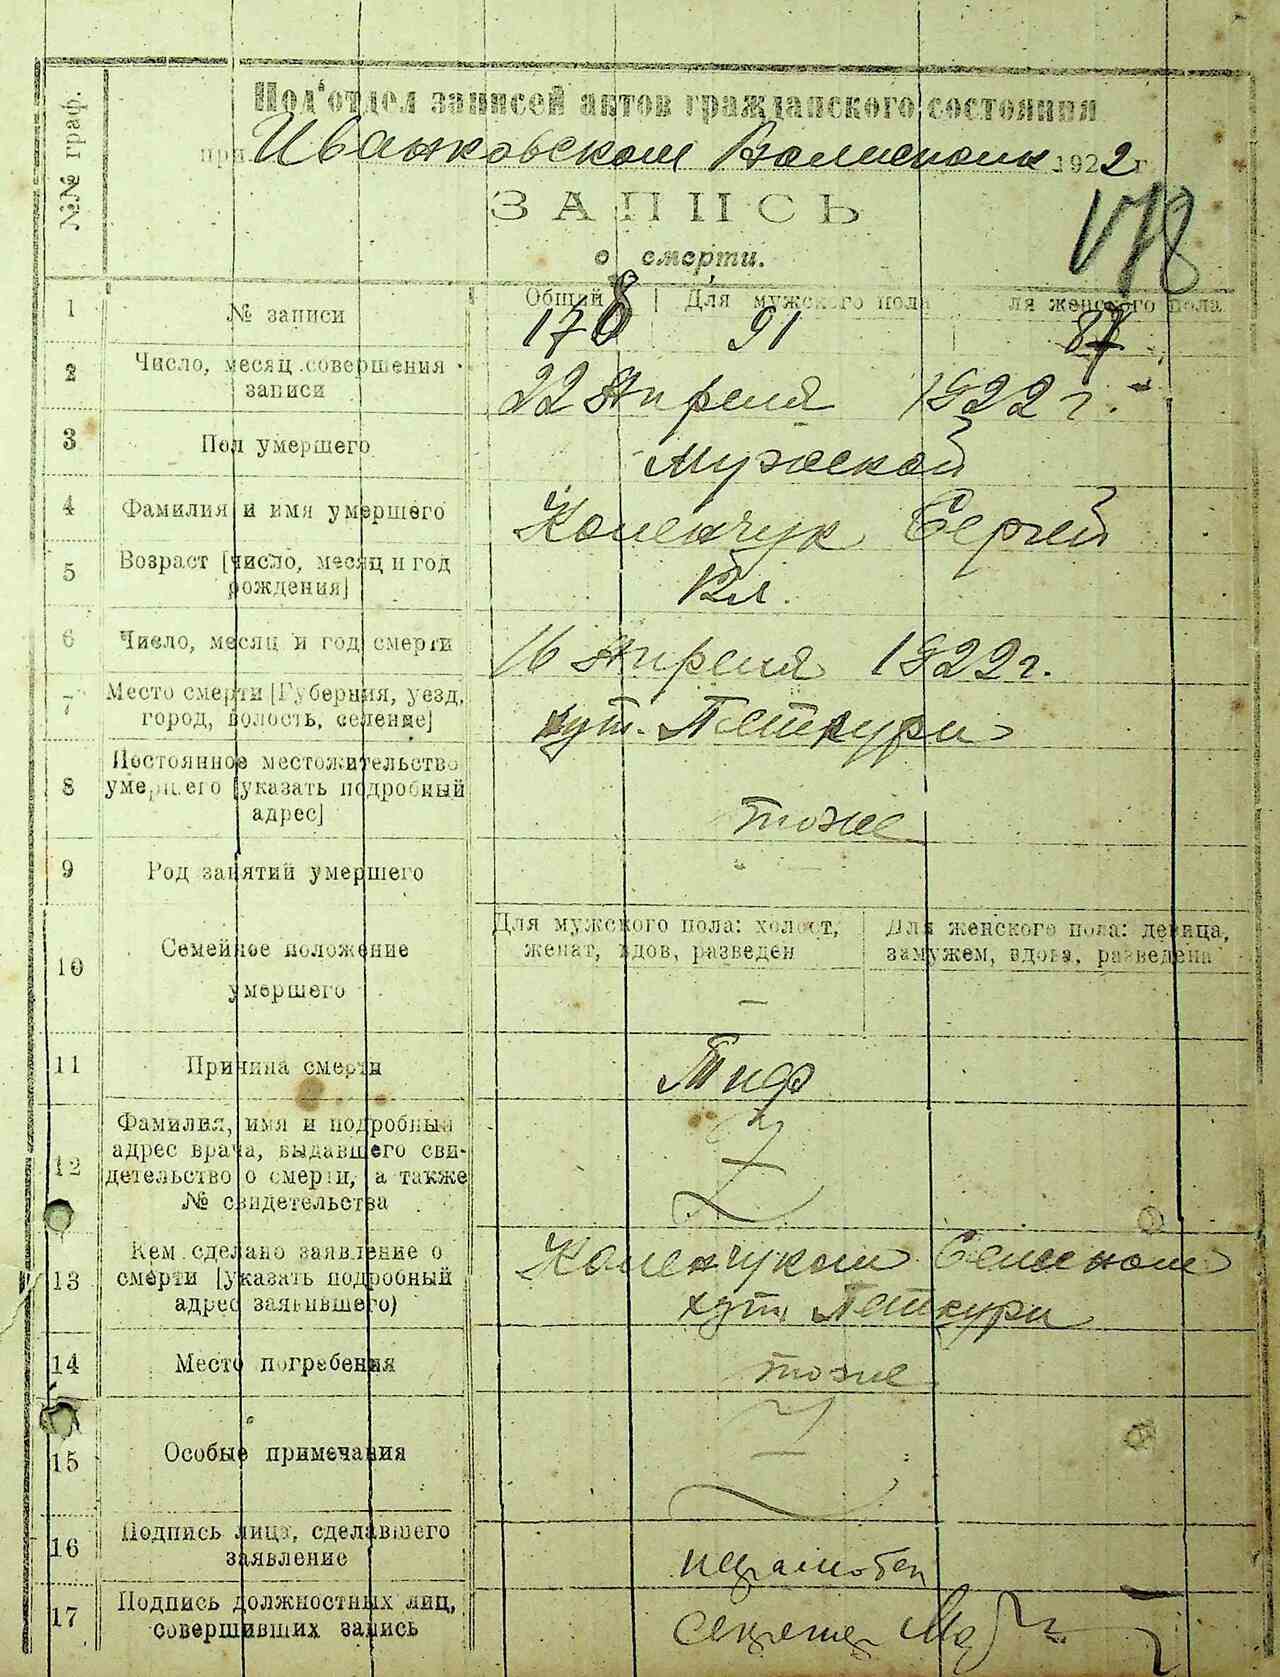 №№ граф.
Под'отдел записей актов гражданского состояния
при Иванковском Волисполк 1922 г
ЗАПИСЬ
о смерти.
178
1 № записи
Общий Для мужского пола ля женского пола
178 91 87
2 Число, месяц совершения записи
22 Апреля 1922 г.
3 Пол умершего
Мужской
4 Фамилия и имя умершего
Коленчук Сергей
5 Возраст [число, месяц и год рождения]
12 л.
6 Число, месяц и год смерти
16 Апреля 1922 г.
7 Место смерти [Губерния, уезд, город, волость, селение]
хут. Петкури
8 Постоянное местожительство умершего [указать подробный адрес]
тоже
9 Род занятий умершего
10 Семейное положение умершего
Для мужского пола: холост, женат, вдов, разведен
Для женского пола: девица, замужем, вдова, разведена
–
11 Причина смерти
Тиф
12 Фамилия, имя и подробный адрес врача, выдавшего свидетельство о смерти, а также № свидетельства
13 Кем сделано заявление о смерти [указать подробный адрес заявившего)
Коленчуком Семеном
хут. Петкури
14 Место погребения
тоже
15 Особые примечания
16 Подпись лица, сделавшего заявление
неграмотен
17 Подпись должностных лиц, совершивших запись